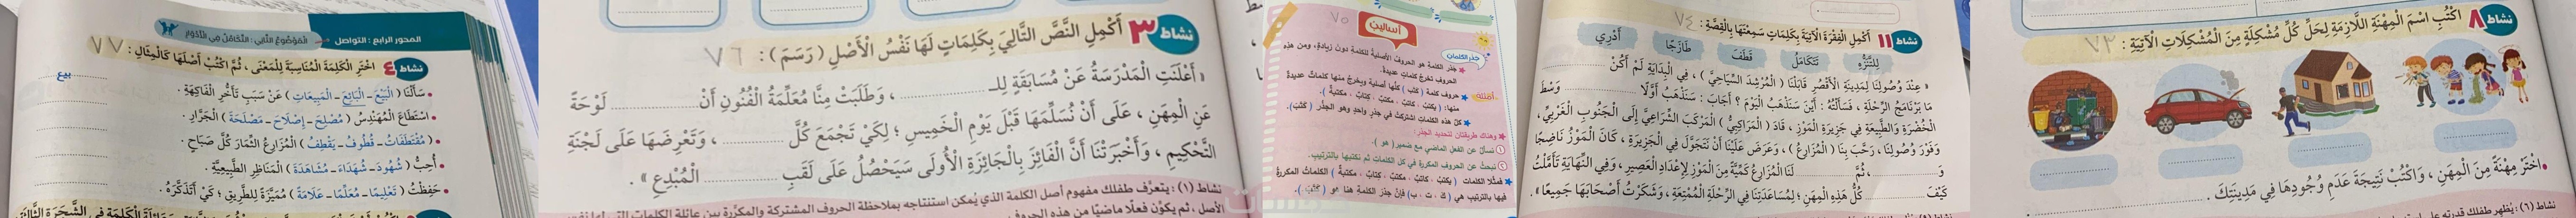 المحور الرابع: التواصل
الْمَوْضُوعُ الثَّانِي: التَّكَامُلُ فِي الْأَدْوَارِ
نشاط ٤ اخْتَرِ الْكَلِمَةَ الْمُنَاسِبَةَ لِلْمَعْنَى ، ثُمَّ اكْتُبْ أَصْلَهَا كَالْمِثَالِ : ٧٧
• سَأَلْنَا ( الْبَيْعَ - الْبَائِعَ - الْمَبِيعَاتِ ) عَنْ سَبَبِ تَأَخُّرِ الْفَاكِهَةِ . بيع
• اسْتَطَاعَ الْمُهَنْدِسُ ( مُصْلِحَ - إِصْلَاحَ - مَصْلَحَةَ ) الْجَرَّارِ .
• ( مُقْتَطَفَاتُ - قُطُوفُ - يَقْطِفُ ) الْمُزَارِعُ الثِّمَارَ كُلَّ صَبَاحٍ .
• أُحِبُّ ( شُهُودَ - شُهَدَاءَ - مُشَاهَدَةَ ) الْمَنَاظِرِ الطَّبِيعِيَّةِ .
• حَفِظْتُ ( تَعْلِيمًا - مُعَلِّمًا - عَلَامَةً ) مُمَيَّزَةً لِلطَّرِيقِ ؛ كَيْ أَتَذَكَّرَهُ .
نشاط ٣ أَكْمِلِ النَّصَّ التَّالِيَ بِكَلِمَاتٍ لَهَا نَفْسُ الْأَصْلِ ( رَسَمَ ) : ٧٦
« أَعْلَنَتِ الْمَدْرَسَةُ عَنْ مُسَابَقَةٍ لِلـ ............ ، وَطَلَبَتْ مِنَّا مُعَلِّمَةُ الْفُنُونِ أَنْ ............ لَوْحَةً
عَنِ الْمِهَنِ ، عَلَى أَنْ نُسَلِّمَهَا قَبْلَ يَوْمِ الْخَمِيسِ ؛ لِكَيْ تَجْمَعَ كُلَّ ............ ، وَتَعْرِضَهَا عَلَى لَجْنَةِ
التَّحْكِيمِ ، وَأَخْبَرَتْنَا أَنَّ الْفَائِزَ بِالْجَائِزَةِ الْأُولَى سَيَحْصُلُ عَلَى لَقَبِ ............ الْمُبْدِعِ » .
نشاط (١): يتعرَّف طفلك مفهوم أصل الكلمة الذي يُمكن استنتاجه بملاحظة الحروف المشتركة والمكرَّرة بين عائلة الكلمات
الأصل ، ثم يكوِّن فعلًا ماضيًا من هذه الحروف
أساليبُ
٧٥
جذر الكلمات
★ جذر الكلمة هو الحروف الأصلية للكلمة دون زيادةٍ، ومن هذه
الحروف تخرج كلمات عديدة.
أمثلة ★ حروف كلمة ( كتب ) كلها أصلية ويخرج منها كلمات عديدة
منها: ( يكتب - كاتب - مكتب - كتاب - مكتبة ).
★ كل هذه الكلمات اشتركت في جذر واحد وهو الجذر ( كتب ).
★ وهناك طريقتان لتحديد الجذر:
① نسأل عن الفعل الماضي مع ضمير ( هو ).
② نبحث عن الحروف المكررة في كل الكلمات ثم نكتبها بالترتيب.
★ فمثلًا الكلمات ( يكتب - كاتب - مكتب - كتاب - مكتبة ) الكلمات المكررة
فيها بالترتيب هي ( ك ، ت ، ب ) فإن جذر الكلمة هنا هو ( كتب ).
نشاط ١١ أَكْمِلِ الْفِقْرَةَ الْآتِيَةَ بِكَلِمَاتٍ سَمِعْتَهَا بِالْقِصَّةِ : ٧٤
لِلتَّنَزُّهِ تَتَكَامَلُ قَطَفَ طَازَجًا أَدْرِي
« عِنْدَ وُصُولِنَا لِمَدِينَةِ الْأُقْصُرِ قَابَلْنَا ( الْمُرْشِدَ السِّيَاحِيَّ ) ، فِي الْبِدَايَةِ لَمْ أَكُنْ ............
مَا بَرْنَامَجُ الرِّحْلَةِ ، فَسَأَلْتُهُ : أَيْنَ سَنَذْهَبُ الْيَوْمَ ؟ أَجَابَ : سَنَذْهَبُ أَوَّلًا ............ وَسْطَ
الْخُضْرَةِ وَالطَّبِيعَةِ فِي جَزِيرَةِ الْمَوْزِ ، قَادَ ( الْمَرَاكِبِيُّ ) الْمَرْكَبَ الشِّرَاعِيَّ إِلَى الْجَنُوبِ الْغَرْبِيِّ ،
وَفَوْرَ وُصُولِنَا ، رَحَّبَ بِنَا ( الْمُزَارِعُ ) ، وَعَرَضَ عَلَيْنَا أَنْ نَتَجَوَّلَ فِي الْجَزِيرَةِ ، كَانَ الْمَوْزُ نَاضِجًا
وَ ............ ، ثُمَّ ............ لَنَا الْمُزَارِعُ كَمِّيَّةً مِنَ الْمَوْزِ لِإِعْدَادِ الْعَصِيرِ ، وَفِي النِّهَايَةِ تَأَمَّلْتُ
كَيْفَ ............ كُلُّ هَذِهِ الْمِهَنِ ؛ لِمُسَاعَدَتِنَا فِي الرِّحْلَةِ الْمُمْتِعَةِ ، وَشَكَرْتُ أَصْحَابَهَا جَمِيعًا » .
نشاط ٨ اكْتُبِ اسْمَ الْمِهْنَةِ اللَّازِمَةِ لِحَلِّ كُلِّ مُشْكِلَةٍ مِنَ الْمُشْكِلَاتِ الْآتِيَةِ : ٧٣
• اخْتَرْ مِهْنَةً مِنَ الْمِهَنِ ، وَاكْتُبْ نَتِيجَةَ عَدَمِ وُجُودِهَا فِي مَدِينَتِكَ .
نشاط (٦): يُظهر طفلك قدرته على